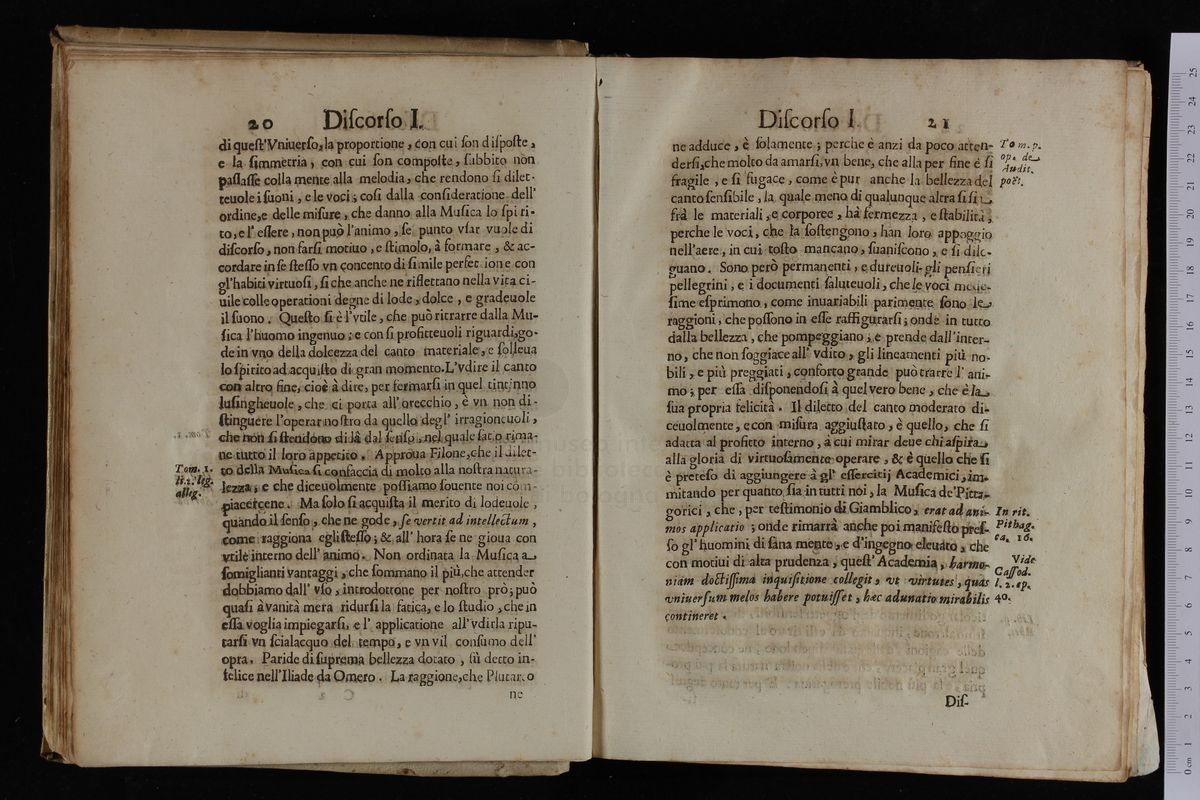 20 Diſcorſo I.
di queſt'Vniuerſo, la proportione, con cui ſon diſpoſte,
e la ſimmetria, con cui ſon compoſte, ſubbito non
paſſaſſe colla mente alla melodia, che rendono ſi dilet-
teuole i ſuoni, e le voci; coſi dalla conſideratione dell'
ordine, e delle miſure, che danno alla Muſica lo ſpiri-
to, e l' eſſere, non può l'animo, ſe punto vſar vuole di
diſcorſo, non farſi motiuo, e ſtimolo, à formare, & ac-
cordare in ſe ſteſſo vn concento di ſimile perfettione con
gl'habiti virtuoſi, ſi che anche ne riflettano nella vita ci-
uile colle operationi degne di lode, dolce, e gradeuole
il ſuono. Queſto ſi è l'vtile, che può ritrarre dalla Mu-
ſica l'huomo ingenuo; e con ſi profitteuoli riguardi, go-
de in vno della dolcezza del canto materiale, e ſolleua
lo ſpirito ad acquiſto di gran momento. L'vdire il canto
con altro fine, cioè à dire, per fermarſi in quel tintinno
luſingheuole, che ci porta all'orecchio, è vn non di-
ſtinguere l'operar noſtro da quello degl' irragioneuoli,
che non ſi ſtendono di là dal ſenſo, nel quale ſatio rima-
ne tutto il loro appetito. Approua Filone, che il dilet-
Tom. 1.
li. 2. leg.
alleg.
to della Muſica ſi confaccia di molto alla noſtra natura-
lezza; e che diceuolmente poſſiamo ſouente noi com-
piacercene. Ma ſolo ſi acquiſta il merito di lodeuole,
quando il ſenſo, che ne gode, ſe vertit ad intellectum,
come raggiona egli ſteſſo; & all' hora ſe ne gioua con
vtile interno dell' animo. Non ordinata la Muſica a
ſomiglianti vantaggi, che ſommano il più, che attender
dobbiamo dall' vſo, introdottone per noſtro prò; può
quaſi à vanità mera ridurſi la fatica, e lo ſtudio, che in
eſſa voglia impiegarſi, e l' applicatione all'vdirla ripu-
tarſi vn ſcialacquo del tempo, e vn vil conſumo dell'
opra. Paride di ſuprema bellezza dotato, fù detto in-
felice nell'Iliade da Omero. La raggione, che Plutarco
C 2
ne
Diſcorſo I. 21
ne adduce, è ſolamente; perche è anzi da poco atten-
Tom. p.
op. de
Audit.
poët.
derſi, che molto da amarſi, vn bene, che alla per fine è ſi
fragile, e ſi fugace, come è pur anche la bellezza del
canto ſenſibile, la quale meno di qualunque altra ſi ſia
frà le materiali, e corporee, hà fermezza, e ſtabilità,
perche le voci, che la ſoſtengono, han loro appoggio
nell'aere, in cui toſto mancano, ſuaniſcono, e ſi dile-
guano. Sono però permanenti, e dureuoli gli penſieri
pellegrini, e i documenti ſaluteuoli, che le voci mede-
ſime eſprimono, come inuariabili parimente ſono le
raggioni, che poſſono in eſſe raffigurarſi; onde in tutto
dalla bellezza, che pompeggiano, e prende dall'inter-
no, che non ſoggiace all' vdito, gli lineamenti più no-
bili, e più preggiati, conforto grande può trarre l' ani-
mo; per eſſa diſponendoſi à quel vero bene, che è la
ſua propria felicità. Il diletto del canto moderato di-
ceuolmente, e con miſura aggiuſtato, è quello, che ſi
adatta al profitto interno, à cui mirar deue chi aſpira
alla gloria di virtuoſamente operare, & è quello che ſi
è preteſo di aggiungere à gl' eſſercitij Academici, im-
mitando per quanto ſia in tutti noi, la Muſica de' Pitta-
gorici, che, per teſtimonio di Giamblico, erat ad ani-
In vit.
Pithag.
ca. 16.
mos applicatio; onde rimarrà anche poi manifeſto preſ-
ſo gl' huomini di ſana mente, e d'ingegno eleuato, che
con motiui di alta prudenza, queſt' Academia, harmo-
Vide
Caſſod.
l. 2. ep.
40.
niam doctiſſima inquiſitione collegit, vt virtutes, quas
vniuerſum melos habere potuiſſet, hæc adunatio mirabilis
contineret.
Diſ-